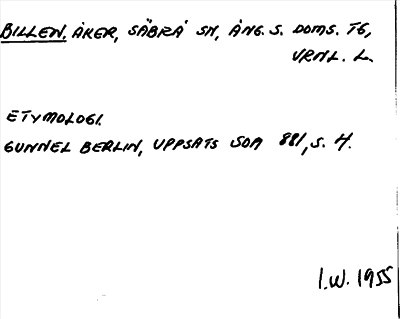 BILLEN, ÅKER, SÄBRÅ SN, ÅNG. S. DOMS. TG,
VRNL. L.
ETYMOLOGI.
GUNNEL BERLIN, UPPSATS SOA 881, S. 4.
I.W. 1955